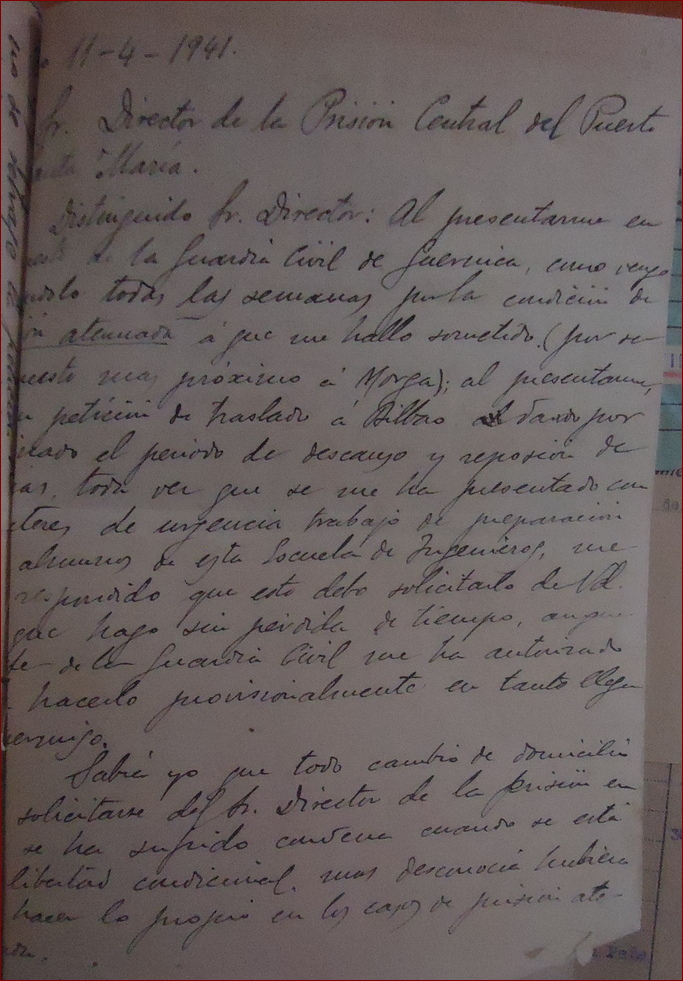 11-4-1941.
Sr. Director de la Prisión Central del Puerto
María.
Distinguido Sr. Director: Al presentarme en
de la Guardia Civil de Guernica, como vengo
todas las semanas por la condición de
atenuada á que me hallo sometido (por ser
mas próximo á Morga); al presentarme,
petición de traslado á Bilbao dando por
el periodo de descanso y reposición de
toda vez que se me ha presentado con
de urgencia trabajo de preparación
alumnos de esta Escuela de Ingenieros, me
respondido que esto debo solicitarlo de Vd.
que hago sin pérdida de tiempo, aunque
de la Guardia Civil me ha autorizado
hacerlo provisionalmente en tanto llega
permiso.
Sabía yo que todo cambio de domicilio
solicitarse del Sr. Director de la prisión en
se ha sufrido condena cuando se está
libertad condicional, mas desconocía hubiera
hacer lo propio en los casos de prisión ate-